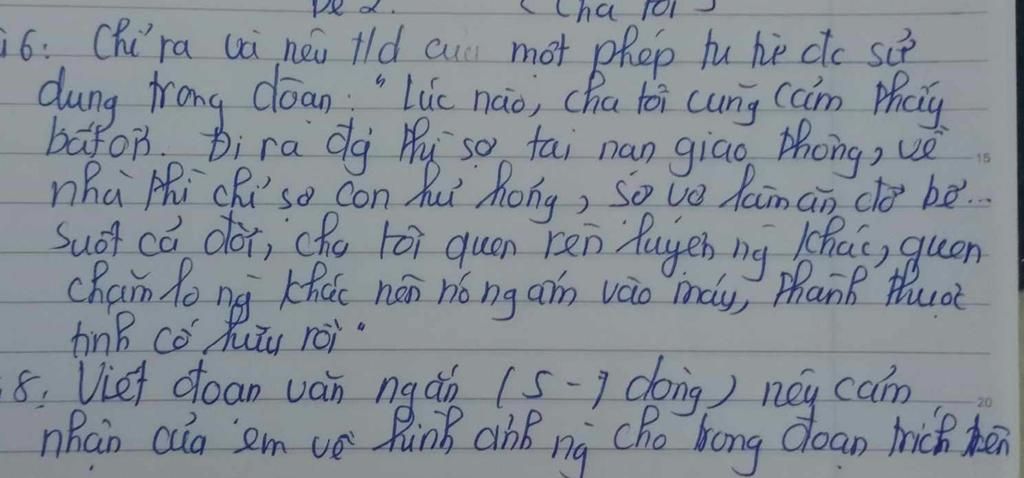 Đề 2. < Cha tôi >
i6: Chỉ ra và nêu t/d của một phép tu từ đc sử
dụng trong đoạn: "Lúc nào, cha tôi cũng cảm thấy
bất ổn. Đi ra đg thì sợ tai nạn giao thông, về
nhà thì chỉ sợ con hư hỏng, sợ vợ làm ăn đổ bể...
Suốt cả đời, cha tôi quen rèn luyện ng khác, quen
chăm lo ng khác nên nó ngấm vào máu, thành thuộc
tính cố hữu rồi"
8: Viết đoạn văn ngắn (5-7 dòng) nêu cảm
nhận của em về hình ảnh ng cha trong đoạn trích trên